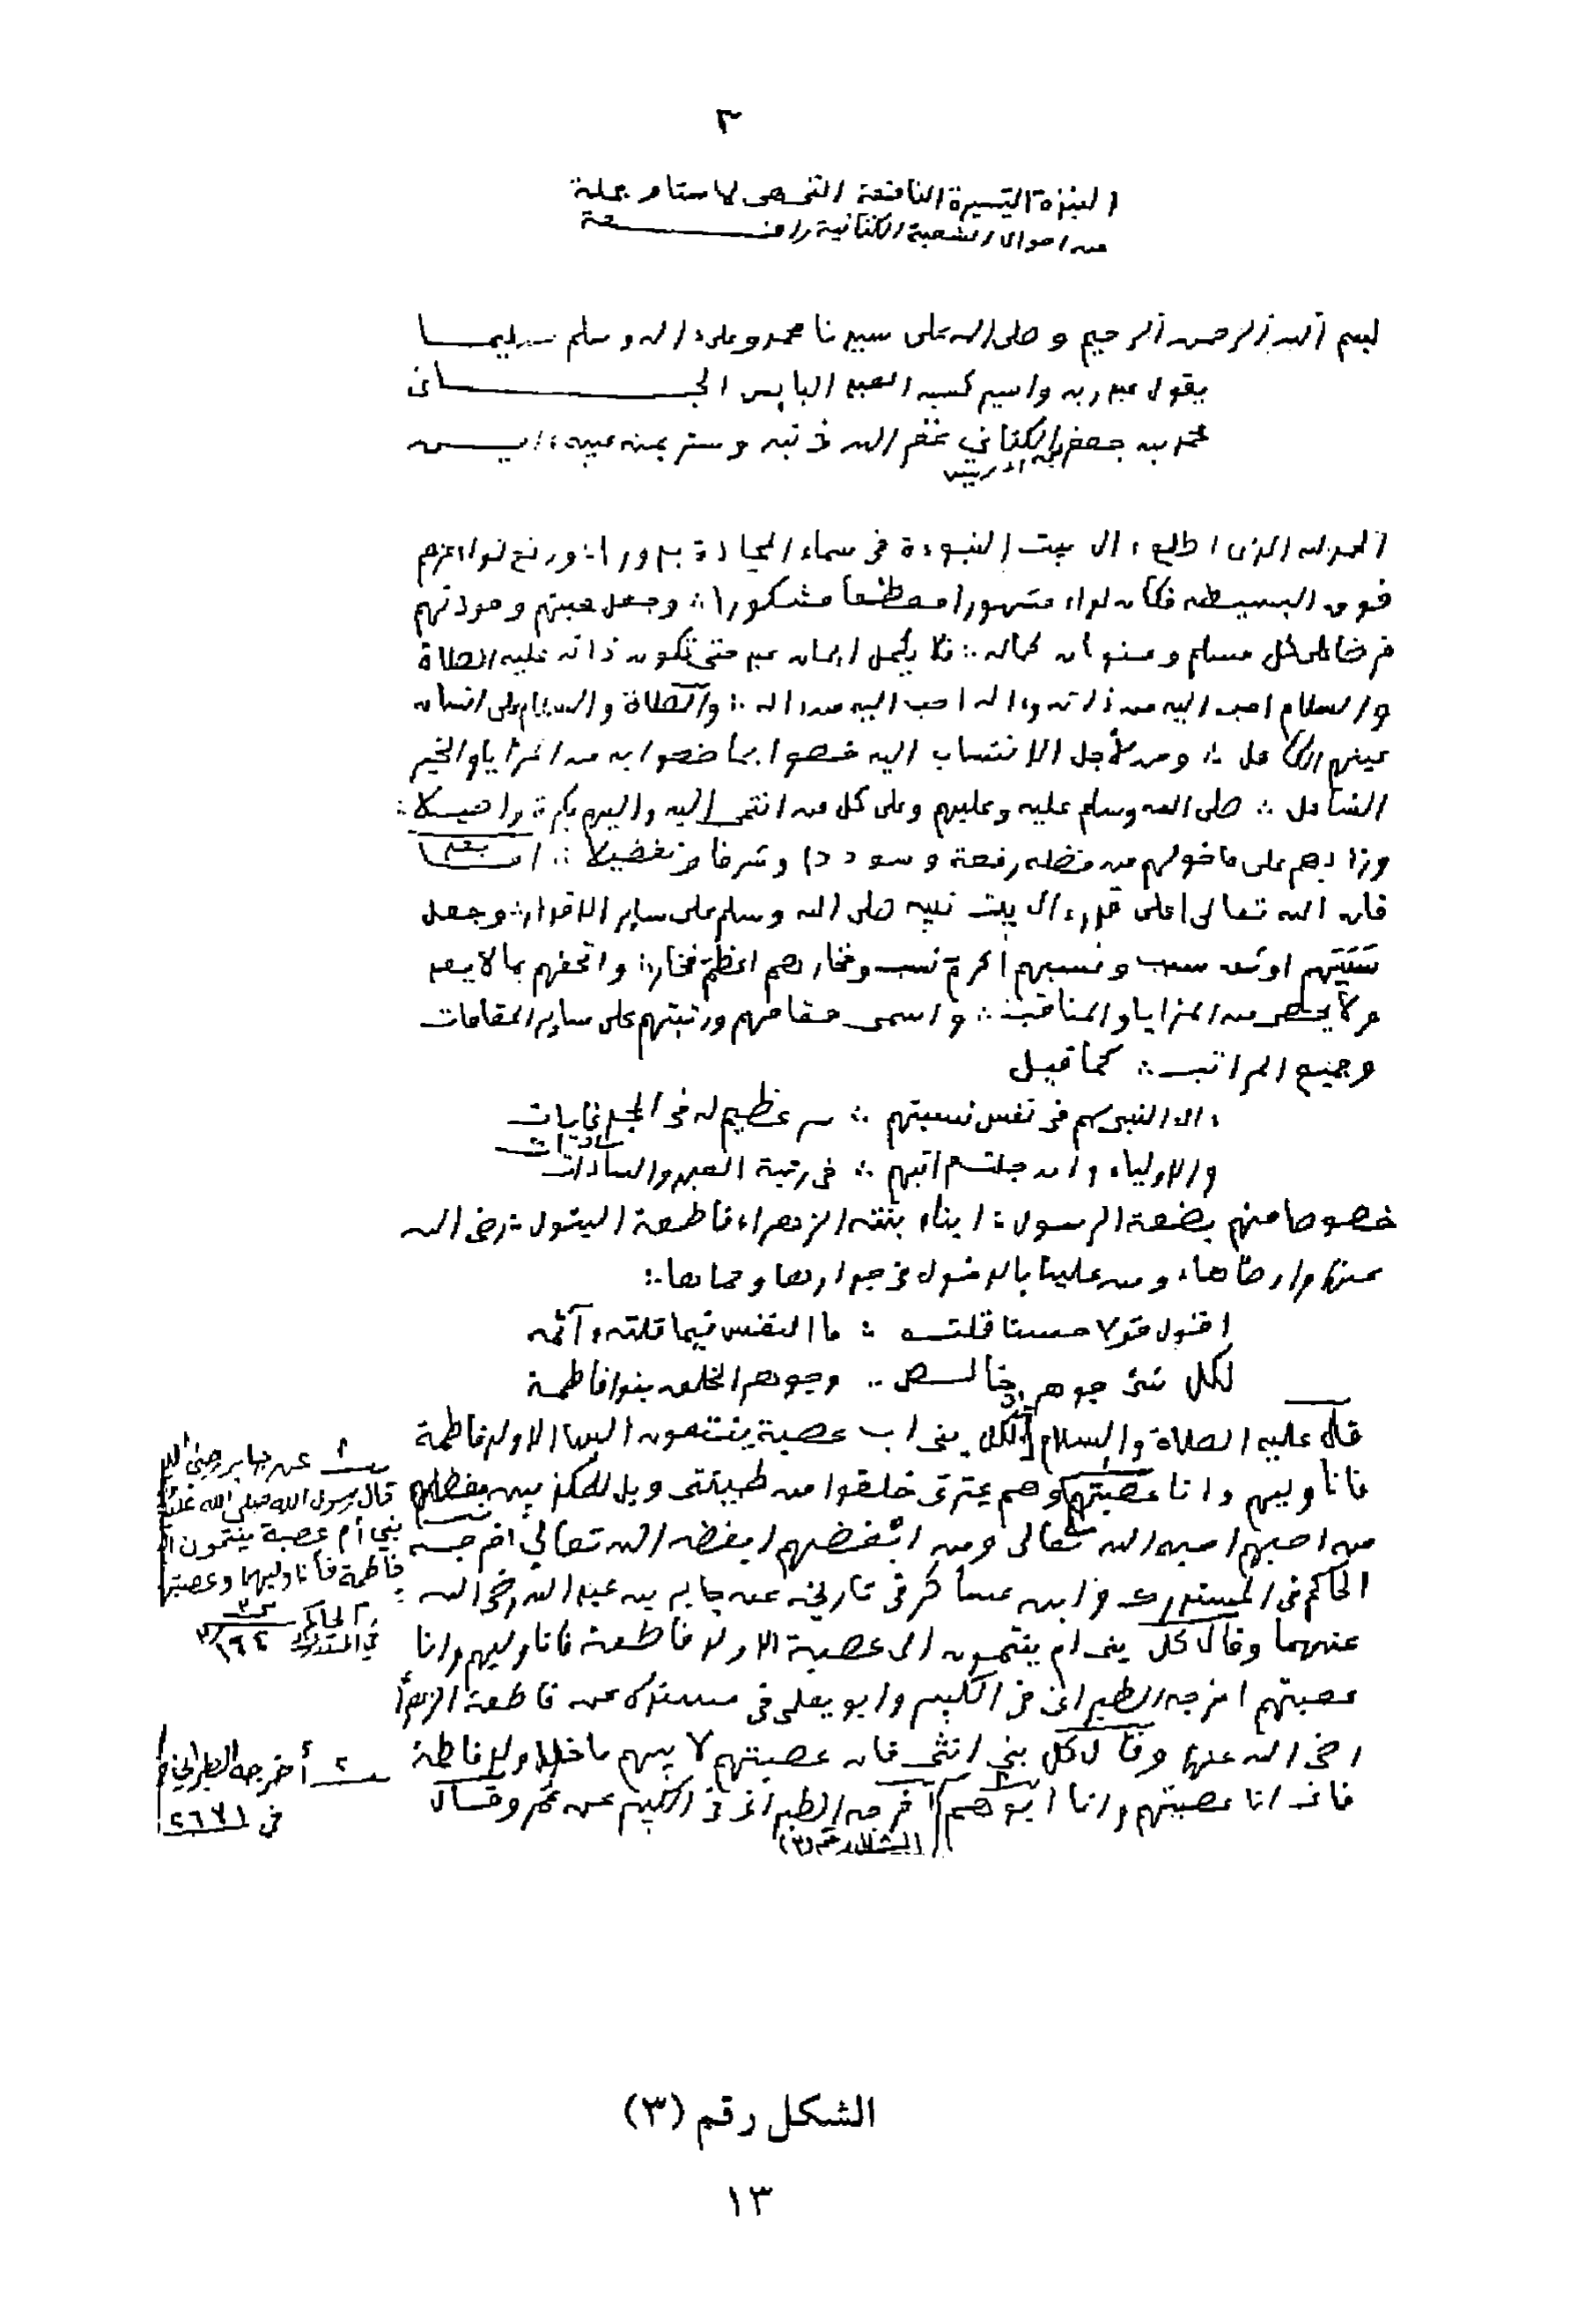 ٣
النبذة اليسيرة النافعة التي هي لأستار جملة
من أحوال الشعبة الكتانية رافعة
بسم الله الرحمن الرحيم وصلى الله على سيدنا محمد وعلى ءاله وسلم تسليما
يقول عبد ربه وأسير كسبه العبد البايس الجاني
محمد بن جعفر بن ادريس الكتاني غفر الله ذنبه وستر بمنه عيبه ءامين
الحمد لله الذي اطلع ءال بيت النبوءة في سماء المجادة بدورا ∴ ورفع لواء عزهم
فوق البسيطة فكان لواء مشهورا معظما مشكورا ∴ وجعل محبتهم ومودتهم
فرضا على كل مسلم وعنوان كماله ∴ فلا يكمل ايمان عبد حتى تكون ذاته عليه الصلاة
والسلام احب اليه من ذاته وءاله احب اليه من ءاله ∴ والصلاة والسلام على انسان
عينهم الكامل ∴ ومن لأجل الانتساب اليه خصوا بما خصوا به من المزايا والخير
الشامل ∴ صلى الله وسلم عليه وعليهم وعلى كل من انتمى اليه واليهم بكرة وأصيلا ∴
وزادهم على ما خولهم من فضله رفعة وسوددا وشرفا وتفضيلا ∴ أما بعد
فان الله تعالى أعلى قدر ءال بيت نبيه صلى الله وسلم على ساير الاقدار ∴ وجعل
سببهم اوثق سبب ونسبهم اكرم نسب وفخارهم اعظم فخار ∴ واتحفهم بما لا يعد
ولا يحصى من المزايا والمناقب ∴ واسمى مقامهم ورتبتهم على ساير المقامات
وجميع المراتب ∴ كما قيل
ءال النبي لهم في نفس نسبتهم ∴ سر عظيم له في المجد غايات
والاولياء وان جلت مراتبهم ∴ في رتبة العبد والسادات سادات
خصوصا منهم بضعة الرسول ∴ ابناء بنته الزهراء فاطمة البتول ∴ رضي الله
عنها وارضاها، ومن علينا بالدخول في جوارها وحماها ∴
اقول قولا حسنا قلته ∴ ما النفس فيما قلته ءآثمه
لكل شيء جوهر خالص ∴ وجوهر الخلق بنو فاطمة
قال عليه الصلاة والسلام [لكل بني اب عصبة ينتمون اليها الا ولد فاطمة
فانا وليهم وانا عصبتهم وهم عترتي خلقوا من طينتي ويل للمكذبين بفضلهم
من احبهم احبه الله تعالى ومن ابغضهم ابغضه الله تعالى اخرجه
الحاكم في المستدرك وابن عساكر في تاريخه عن جابر بن عبد الله رضي الله
عنهما وقال كل بني ام ينتمون الى عصبة الا ولد فاطمة فانا وليهم وانا
عصبتهم اخرجه الطبراني في الكبير وابو يعلى في مسنده عن فاطمة الزهرا
رضي الله عنها وقال كل بني انثى فان عصبتهم لابيهم ما خلا ولد فاطمة
فاني انا عصبتهم وانا ابوهم] اخرجه الطبراني في الكبير عن عمر وقال
الشكل رقم (٣)
١ عن جابر رضي الله
قال رسول الله صلى الله عليه
بني أم عصبة ينتمون
فاطمة فأنا وليهما وعصبتهما
الحاكم
في المستدرك ٣/١٦٤
٢ أخرجه الطبراني
في ٢٦٣١
الشكل رقم (٣)
١٣